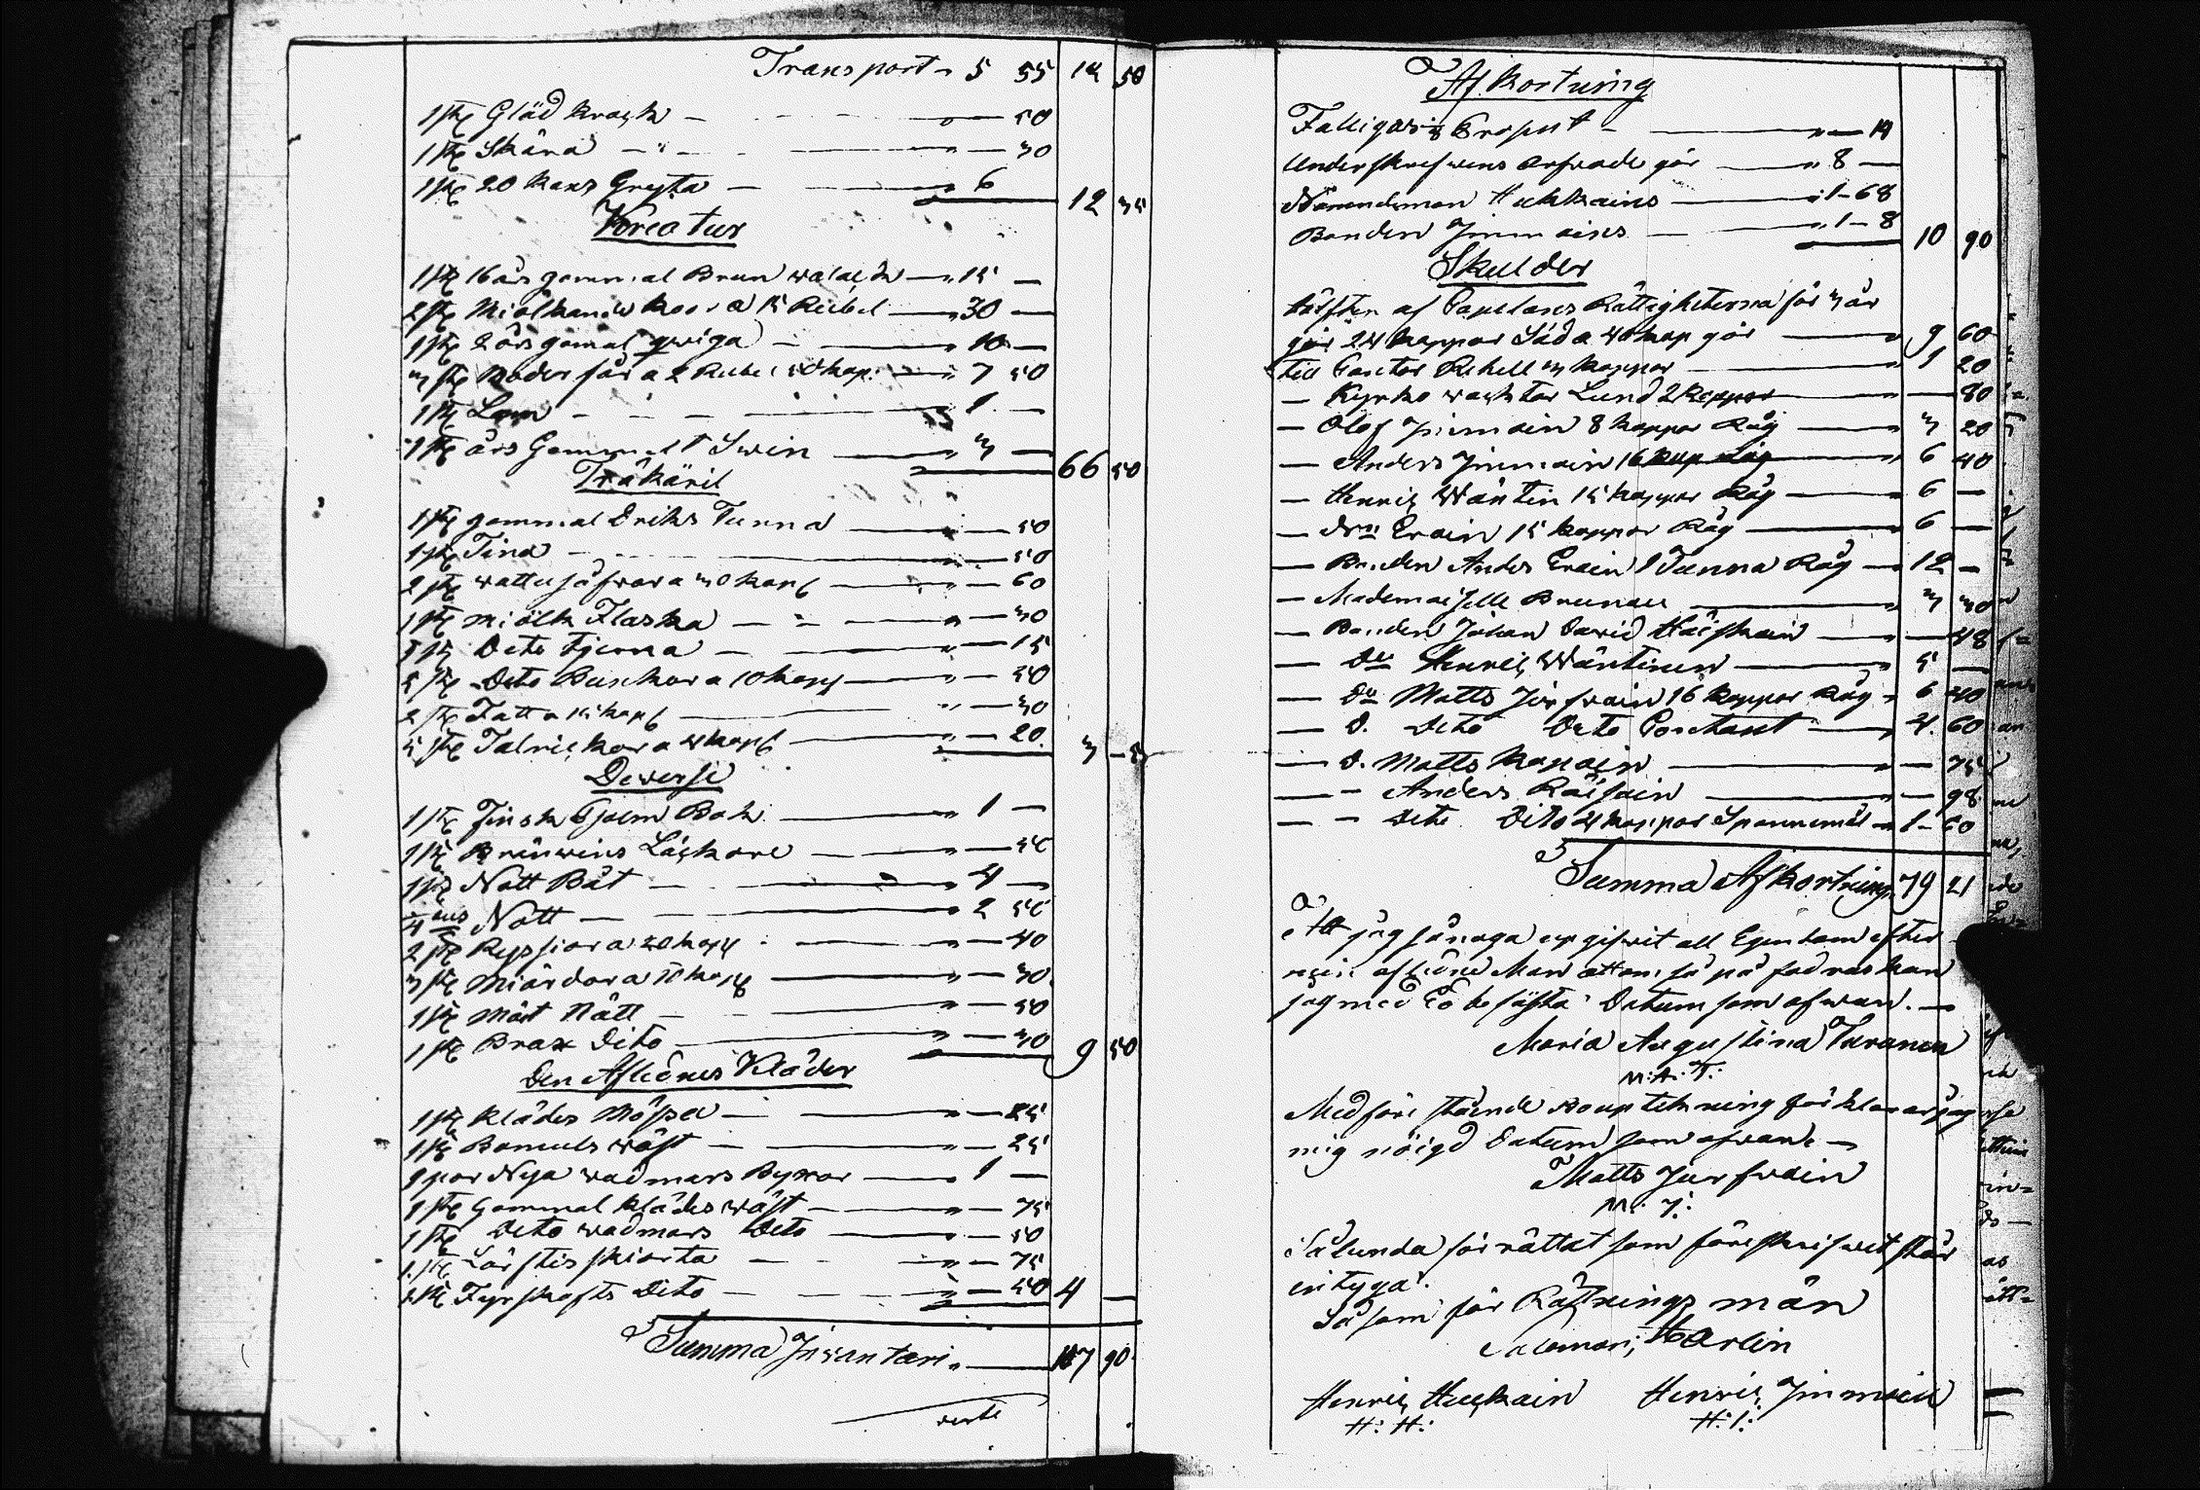 Transport " 5 55 14 50
1 st Glöd krock " — 50
1 st Skära " — 30
1 st 20 kans Gryta " 6 12 35
Kreatur
1 st 16 års gammal Brun walack " 15 —
2 st Miölkande koor a 15 Rubel " 30 —
1 st 2 års gamal qwiga " 10 —
3 st Moder får a 2 Rubel 50 kop. " 7 50
1 st Lam " 1 —
1 st års Gammalt Swin " 3 — 66 50
Träkäril
1 st gammal Driks Tunna " — 50
1 st Tina " — 50
2 st wattu såfwar a 30 kop " — 60
1 st miölk Flaska " — 30
1 st Dito Tjerna " — 15
5 st Dito Bunkar a 10 kop " — 50
2 st Fatt a 15 kop " — 30
5 st Talrickar a 4 kop " — 20 3 — 5
Diverse
1 st Finsk Psalm Bok " 1 —
1 st Bränwins Läckare " — 50
1 st Nott Båt " 4 —
Nott " 2 50
2 st Ryssior a 20 kop " — 40
3 st Miärdar a 10 kop " — 30
1 st Mört Nätt " — 50
1 st Brax Dito " — 30 9 50
Den Aflednes Kläder
1 st klädes Mössa " — 25
1 st Bomuls wäst " — 25
1 par Nya wadmars Byxor " 1 —
1 st Gammal klädes wäst " — 75
1 st Dito wadmars Dito " — 50
1 st Lärftis skiorta " — 75
1 st Fyrskafts Dito " — 50 4 —
Summa Inwantari " 107 90
verte
Afkortning
Fattigas Procent " — 14
Underskrefwens arfwode gör " 8 —
Nämndeman Huckains " 1 - 68
Bonden Immoises " 1 - 8 10 90
Skulder
hälften af Capelans Rättigheterna för 3 år
gör 24 kappar Säd a 40 kop gör " 9 60
till Cantor Rehell 3 kappar " 1 20
— Kyrko wacktar Lund 2 kappar — 80
— Olof Immoin 8 kappar Råg " 3 20
— Anders Immoin 16 kap Råg " 6 40
— Henric Wäntin 15 kappar Råg " 6 —
— Erain 15 kappar Råg " 6 —
— Bonden Anders Erain 1 Tunna Råg " 12 —
— Mademoiselle Brunou " 3 30
— Bonden Johan David " — 48
— Do Henric Wäntinen " 5 —
— Do Matts Jurfwain 16 kappar Råg " 6 40
— D. Dito Dito Contant " 4. 60
— D. Matts Kopoin " — 75
— - Anders Räisain " — 98
— - Dito Dito 4 kappar Spannemål " 1 - 60
Summa Afkortning 79 21
Att jag så noga upgifwit all Egendom efter
min aflidne Man att om så på fodras kan
jag med Ed befästa: Datum som ofwan. —
Maria Augustina Turanen
M: A: T:
Med före stående Bouptekning förklarar jag
mig nöigd Datum som ofwan —
Matts Jurfwain
M: J:
Sålunda förrättat som föreskrifwit står
intyga.
Såsom för Rättnings män
Salomon, Harlin
Henric Huckain Henric Immoin
H: H: H: I: